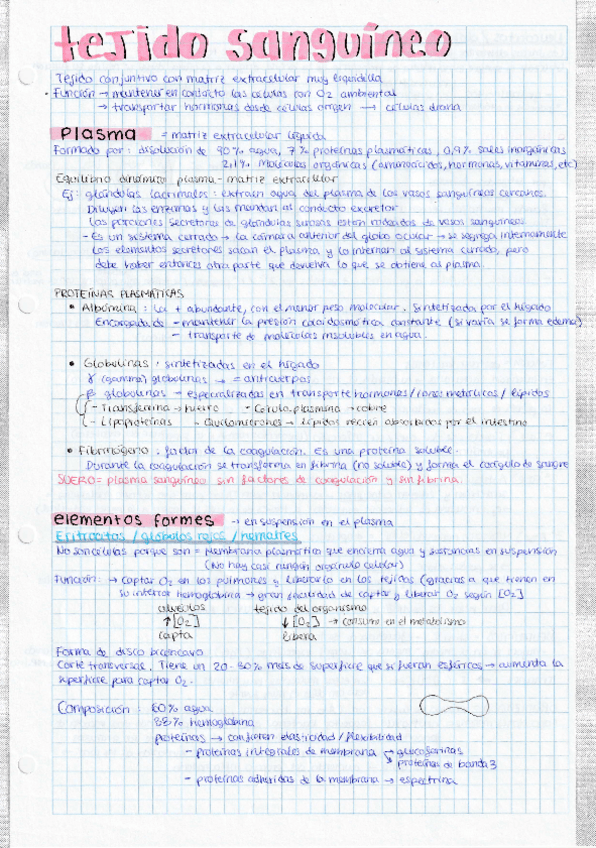 tejido sanguíneo
Tejido conjuntivo con matriz extracelular muy líquidilla
· Función → mantener en contacto las células con O2 ambiental
→ transportar hormonas desde células origen → células diana
Plasma = matriz extracelular líquida
Formado por: disolución de 90% agua, 7% proteínas plasmáticas, 0,9% sales inorgánicas
2,1% moléculas orgánicas (aminoácidos, hormonas, vitaminas, etc)
Equilibrio dinámico plasma - matriz extracelular
Ej: glándulas lacrimales: extraen agua del plasma de los vasos sanguíneos cercanos.
Diluyen las enzimas y las mandan al conducto excretor
Las porciones secretoras de glándulas serosas están rodeadas de vasos sanguíneos.
- Es un sistema cerrado → la cámara anterior del globo ocular → se segrega internamente
Los elementos secretores sacan el plasma y lo internan al sistema cerrado, pero
debe haber entonces otra parte que devuelva lo que se obtiene al plasma.
PROTEÍNAS PLASMÁTICAS
• Albúmina: La + abundante, con el menor peso molecular. Sintetizada por el hígado
Encargada de - mantener la presión coloidosmótica constante (si varía se forma edema)
- transporte de moléculas insolubles en agua.
• Globulinas: sintetizadas en el hígado
γ (gamma) globulinas → = anticuerpos
β globulinas - especializadas en transporte hormonas / iones metálicos / lípidos
- Transferrina → hierro - Ceruloplasmina → cobre
- Lipoproteínas - Quilomicrones → lípidos recien absorbidos por el intestino
• Fibrinógeno: factor de la coagulación. Es una proteína soluble.
Durante la coagulación se transforma en fibrina (no soluble) y forma el coágulo de sangre
SUERO = plasma sanguíneo sin factores de coagulación y sin fibrina.
elementos formes → en suspensión en el plasma
Eritrocitos / glóbulos rojos / hematíes
No son células porque son = Membrana plasmática que encierra agua y sustancias en suspensión
(No hay casi ningún orgánulo celular)
Función: → captar O2 en los pulmones y liberarlo en los tejidos (gracias a que tienen en
su interior hemoglobina → gran facilidad de captar y liberar O2 según [O2]
alvéolos tejido del organismo
↑[O2] ↓[O2] → consumo en el metabolismo
capta libera
Forma de disco bicóncavo
Corte transversal. Tiene un 20-30% más de superficie que si fueran esféricos → aumenta la
superficie para captar O2.
Composición: 60% agua
33% hemoglobina
proteínas → confieren elasticidad / flexibilidad
- proteínas integrales de membrana glucoforinas
proteína de banda 3
- proteínas adheridas de la membrana → espectrina